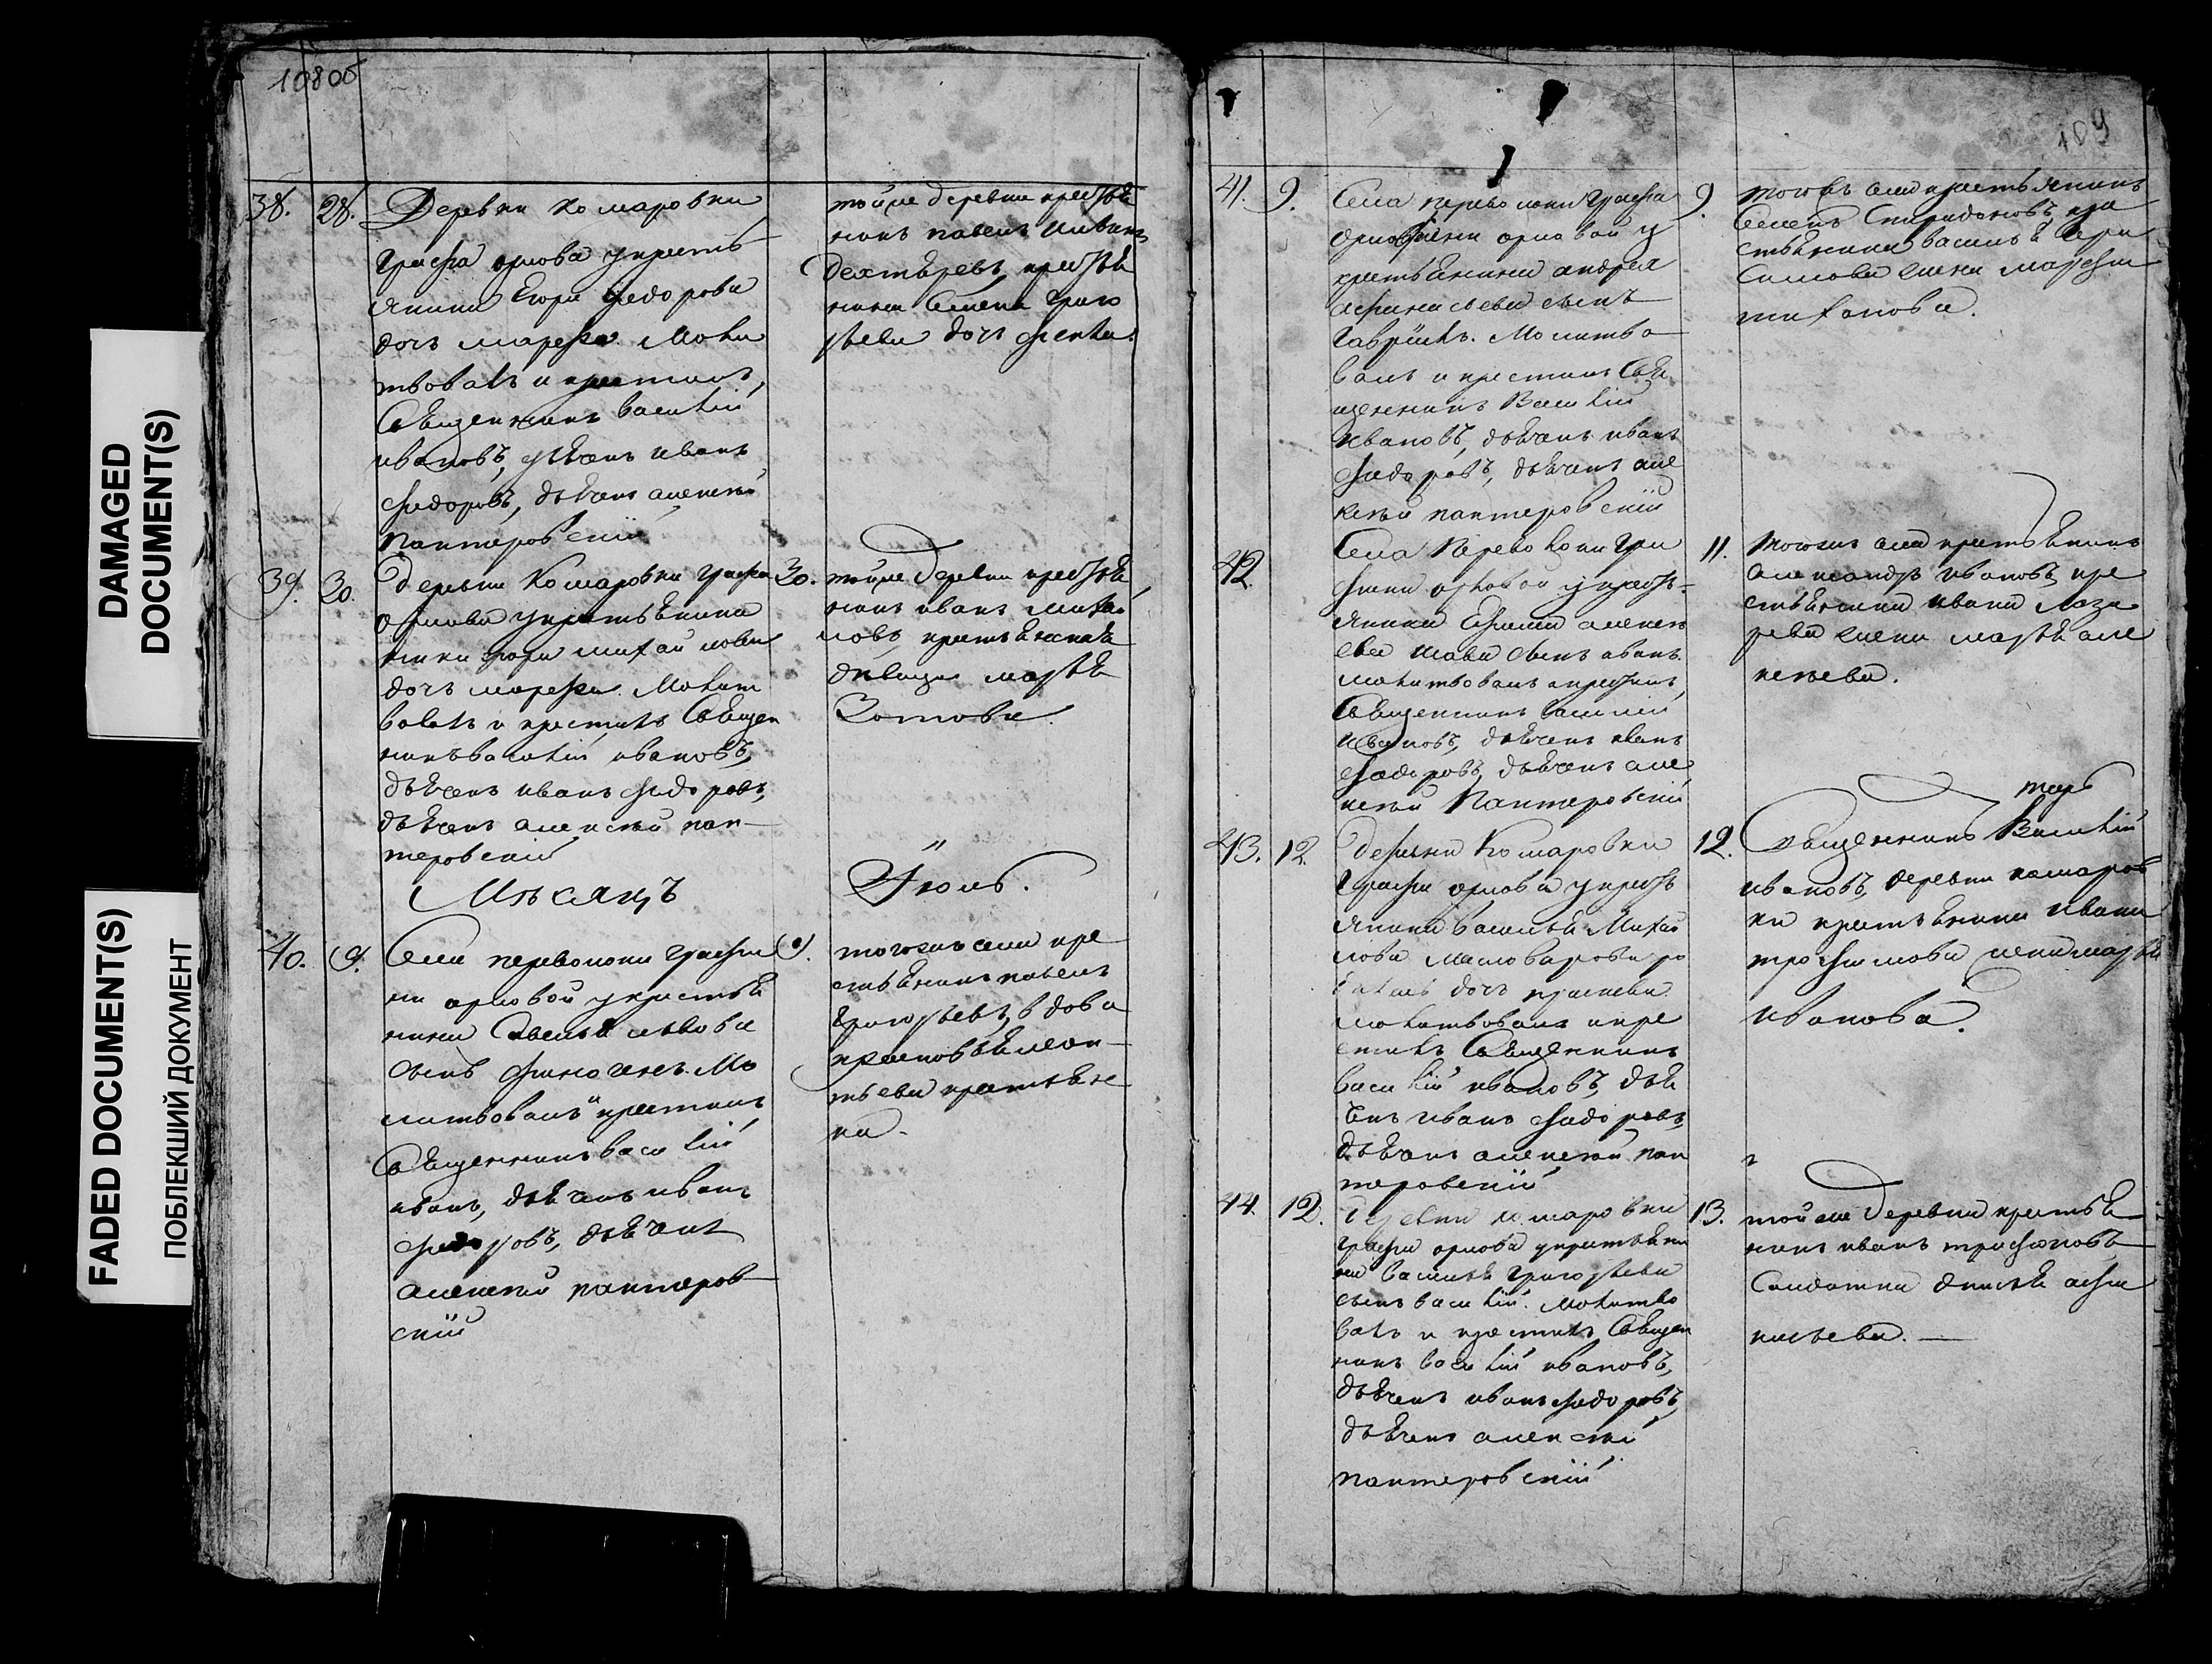 108об
38. 28. Деревни Комаровки
графа орлова укресть
янина Егора Федорова
дочь марефа. Моли
твовалъ и крестилъ
Священникъ василій
ивановъ, дьячекъ иванъ
Федоровъ, дьячекъ алексѣй
пантеровскій
тойже деревни крестья
нинъ павелъ
Дехтяревъ, крестья
нина Семена Григо
рьева дочь
39. 30. деревни Комаровки графа
орлова укрестьянина
михайлова
дочь марефа. Молит
вовалъ и крестилъ Священ
никъ василій ивановъ,
дьячекъ иванъ Федоровъ,
дьячекъ алексѣй пан
теровскій
30. тойже деревни крестья
нинъ иванъ михай
ловъ, крестьянская
девица марѳа
Зотова.
Мѣсяцъ
Іюль.
40. 9. Села переволоки графи
ни орловой укрестья
нина Савелья львова
сынъ финогенъ. Мо
литвовалъ и крестилъ
Священникъ василій
иванъ, дьячекъ иванъ
Федоровъ, дьячекъ
алексѣй пантеров
скій
9. тогожъ села кре
стьянинъ павелъ
Григорьевъ, вдова
тьева крестьянк
ка.
109
41. 9. Села переволоки графа
орловой у
крестьянина андрея
афанасьева сынъ
Гавріилъ. Молитво
валъ и крестилъ Свя
щенникъ Василій
ивановъ, дьячекъ иванъ
Федоровъ, дьячекъ але
ксѣй пантеровскій
9. тогожъ села крестьянинъ
Семенъ Спиридоновъ, кре
стьянина василья Гера
симова жена марфа
тиханова.
42. Села Переволоки гра
фини орловой укресть
янина Ефима алексѣ
ева сынъ иванъ.
молитвовалъ и крестилъ
Священникъ василій
ивановъ, дьячекъ иванъ
Федоровъ, дьячекъ але
ксѣй Пантеровскій
11. тогожъ села крестьянинъ
александръ ивановъ, кре
стьянина ивана лаза
рева жена марѳа але
ксѣева.
43. 12. Деревни Комаровки
Графа орлова укресть
янина василья Михай
лова Масловарова ро
дилась дочь
молитвовалъ и кре
стилъ Священникъ
василій ивановъ, дья
чекъ иванъ Федоровъ,
дьячекъ алексѣй пан
теровскій
12. Священникъ Василій
ивановъ, деревни комаров
ки крестьянина ивана
трофимова жена марѳа
иванова.
44. 12. Деревни комаровки
графа орлова укрестьяни
на василья григорьева
сынъ василій. Молитво
валъ и крестилъ Священ
никъ василій ивановъ,
дьячекъ иванъ Федоровъ,
дьячекъ алексѣй
пантеровскій
13. тойже деревни крестья
нинъ иванъ трифоновъ
Салдатка афа
насьева.
DAMAGED
DOCUMENT(S)
FADED DOCUMENT(S)
ПОБЛЕКШИЙ ДОКУМЕНТ